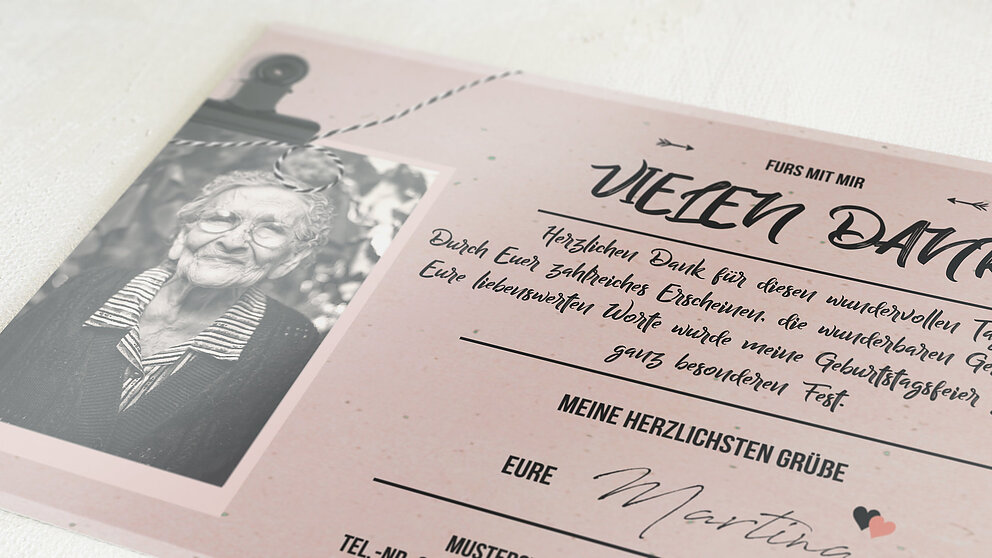 FÜRS MIT MIR
VIELEN DANK
Herzlichen Dank für diesen wundervollen
Durch Euer zahlreiches Erscheinen, die wunderbaren
Eure liebenswerten Worte wurde meine Geburtstagsfeier
ganz besonderen Fest.
MEINE HERZLICHSTEN GRÜßE
EURE Martina
TEL.-NR.